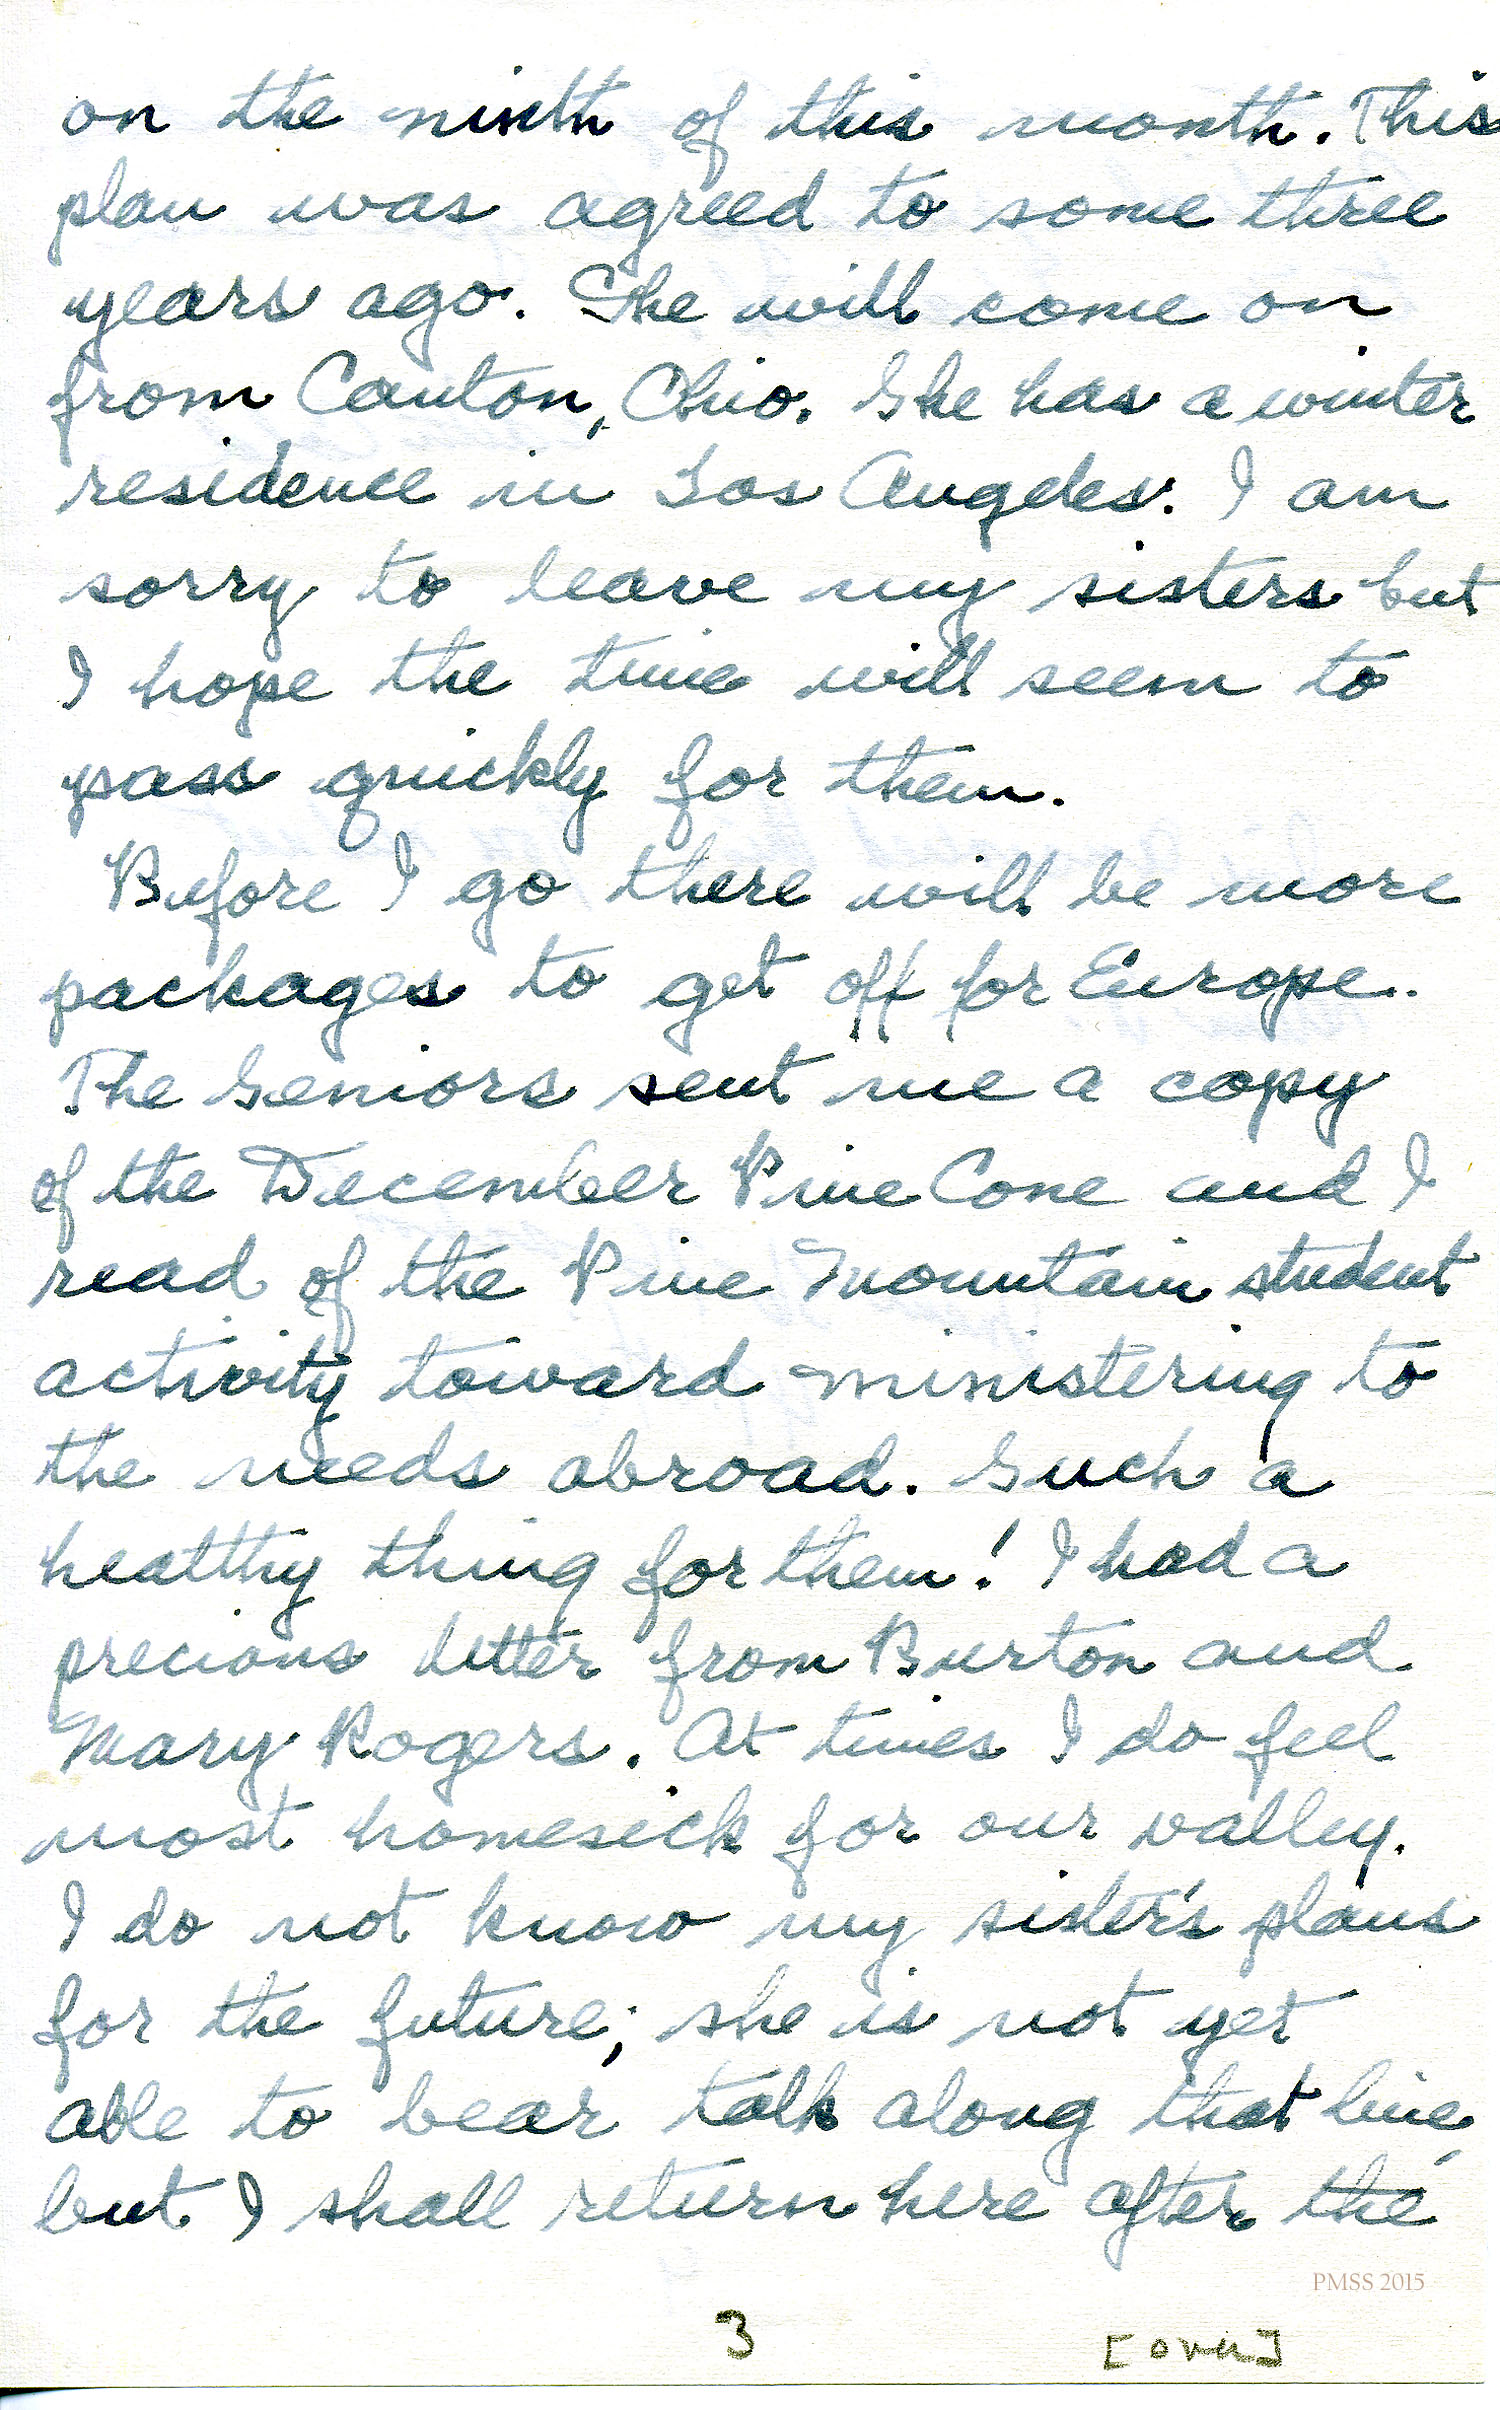 on the ninth of this month. This
plan was agreed to some three
years ago. She will come on
from Canton, Ohio. She has a winter
residence in Los Angeles. I am
sorry to leave my sisters but
I hope the time will seem to
pass quickly for them.
Before I go there will be more
packages to get off for Europe.
The Seniors sent me a copy
of the December Pine Cone and I
read of the Pine Mountain student
activity toward ministering to
the needs abroad. Such a
healthy thing for them! I had a
precious letter from Burton and
Mary Rogers. At times I do feel
most homesick for our valley.
I do not know my sister's plans
for the future; she is not yet
able to bear talk along that line,
but I shall return here after the
PMSS 2015
3 [over]